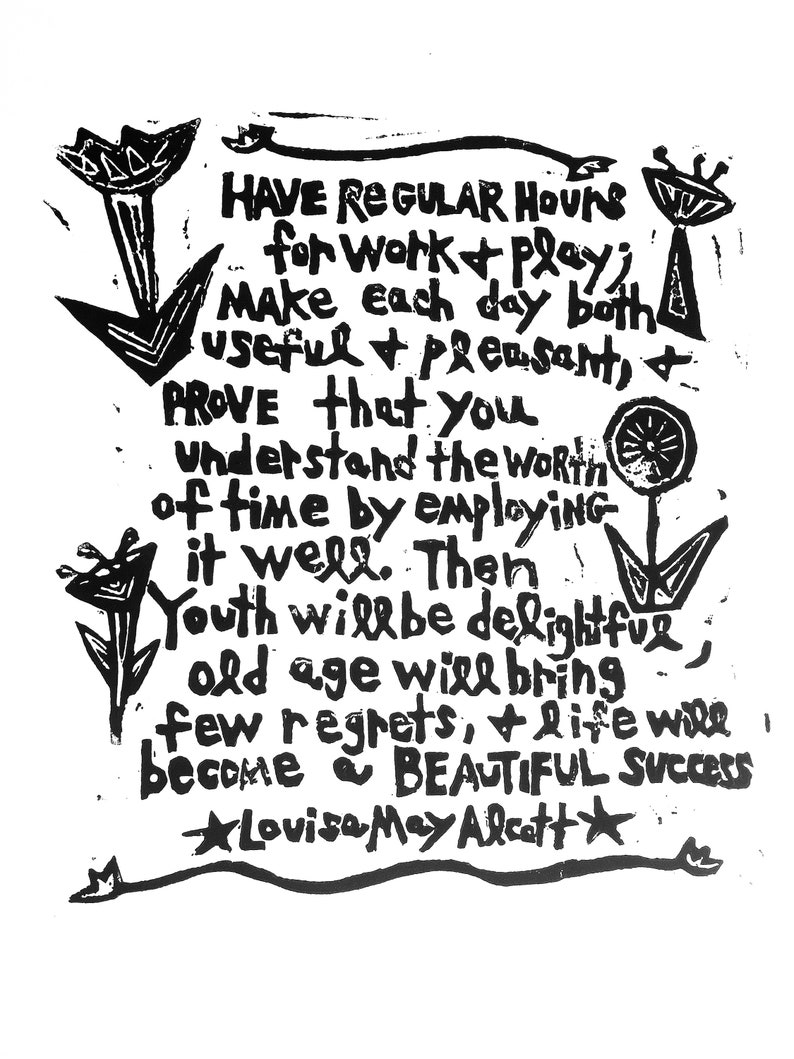 HAVE ReGULAR Hours
for work & play;
MAKe each day both
useful & pleasant, &
PROVE that you
understand the woRth
of time by employiNG
it well. Then
Youth will be delightful,
old age will bring
few regrets, & life will
become a BEAUTIFUL success
★Louisa May Alcott★